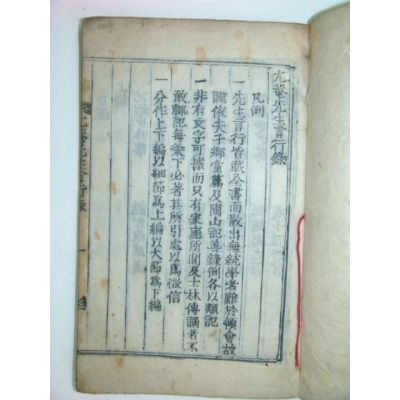 尤菴先生言行錄
凡例
一先生言行皆載全書而散出無統學者難於領會故
謹依夫子鄕黨篇及陶山記善錄例各以類記
一非有文字可據而只有家庭所聞及士林傳誦者不
敢輒記每條下必著其所引處以爲徵信
一分作上下編以細節爲上編以大節爲下編
尤菴先生言行錄
一